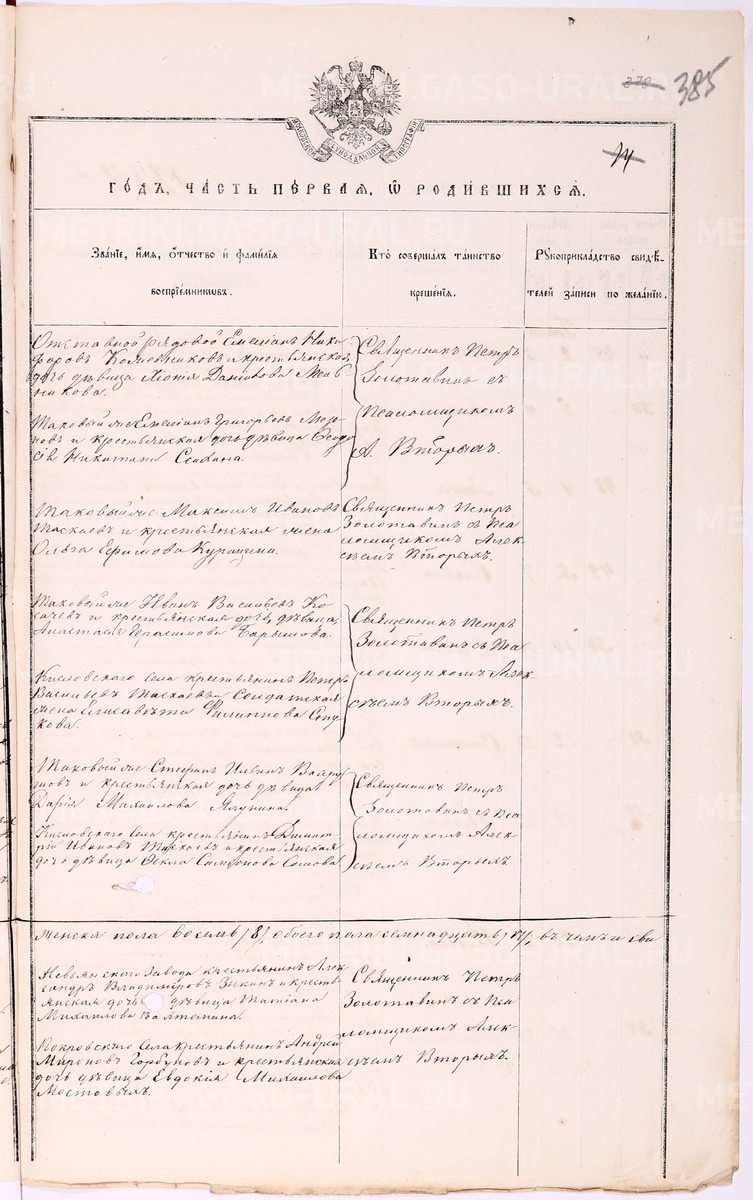 378 385
МОСКОВСКОЙ СИНОДАЛЬНОЙ ТИПОГРАФІИ
74
ГОДЪ, ЧАСТЬ ПЕРВАЯ, Ѡ РОДИВШИХСЯ.
Званіе, имя, отчество и фамилія
воспріемниковъ.
Кто совершалъ таинство
крещенія.
Рукоприкладство свидѣ-
телей записи по желанію.
Отставной рядовой Емеліанъ Ники
форовъ и крестьянская
дочь дѣвица Данилова
никова.
Таковый же Емеліанъ Григорьевъ
новъ и крестьянская дочь дѣвица Ѳеодо
сія Никитина
Священникъ Петръ
Золотавинъ съ
псаломщикомъ
А. Вторыхъ.
Таковый же Максимъ Ивановъ
Таскаевъ и крестьянская жена
Ольга Ефимова Курицына.
Священникъ Петръ
Золотавинъ съ Пса
ломщикомъ Алек
сѣемъ Вторыхъ.
Таковый же Иванъ Васильевъ Ко
сачевъ и крестьянская дочь дѣвица
Анастасія Герасимова Барышова.
Кисловскаго села крестьянинъ Петръ
Васильевъ Таскаевъ и солдатская
жена Елисавета Филиппова
кова.
Священникъ Петръ
Золотавинъ съ Пса
ломщикомъ Алек
сѣемъ Вторыхъ.
Таковый же Стефанъ Ильинъ
и крестьянская дочь дѣвица
Дарія Михаилова
Кисловскаго села крестьянинъ Димит
рій Ивановъ Таскаевъ и крестьянская
дочь дѣвица Ѳекла Симеонова
Священникъ Петръ
Золотавинъ съ Пса
ломщикомъ Алек
сѣемъ Вторыхъ.
женска пола восемь /8/, обоего пола семнадцать /17/, въ чемъ и сви
Невьянскаго завода крестьянинъ Алек
сандръ Владиміровъ Зыкинъ и кресть
янская дочь дѣвица Татіана
Михаилова
Покровскаго села крестьянинъ Андрей
Мироновъ Горбуновъ и крестьянская
дочь дѣвица Евдокія Михаилова
Мостовыхъ.
Священникъ Петръ
Золотавинъ съ Пса
ломщикомъ Алек
сѣемъ Вторыхъ.